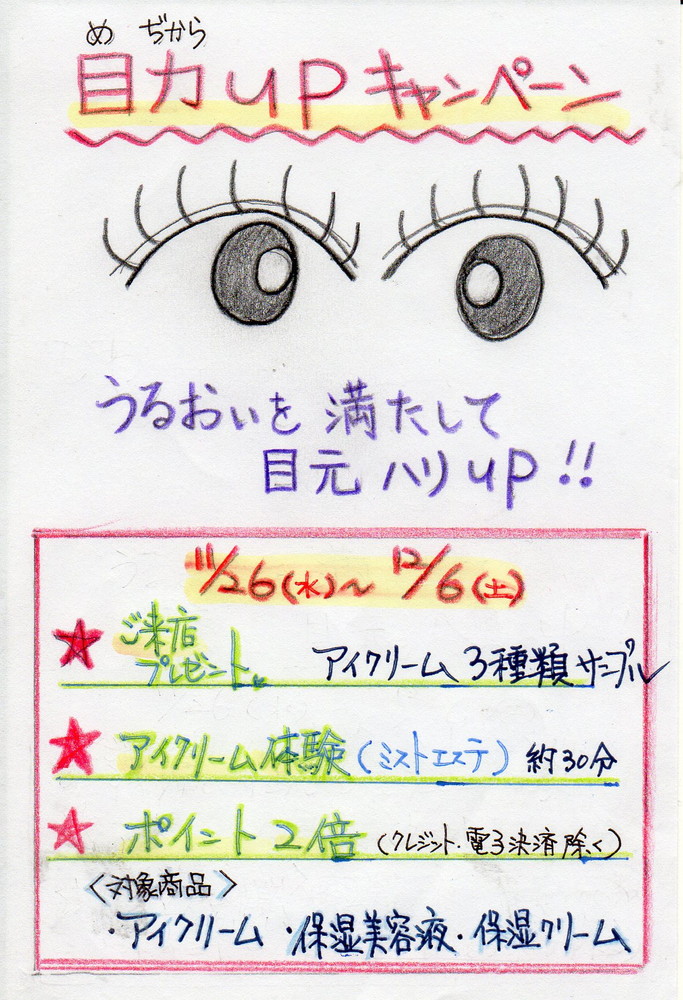 めぢから
目力upキャンペーン
うるおいを満たして
目元ハリup!!
11/26(水)~12/6(土)
★ご来店プレゼント アイクリーム3種類サンプル
★アイクリーム体験(ミストエステ)約30分
★ポイント2倍(クレジット・電子決済除く)
<対象商品>
・アイクリーム・保湿美容液・保湿クリーム